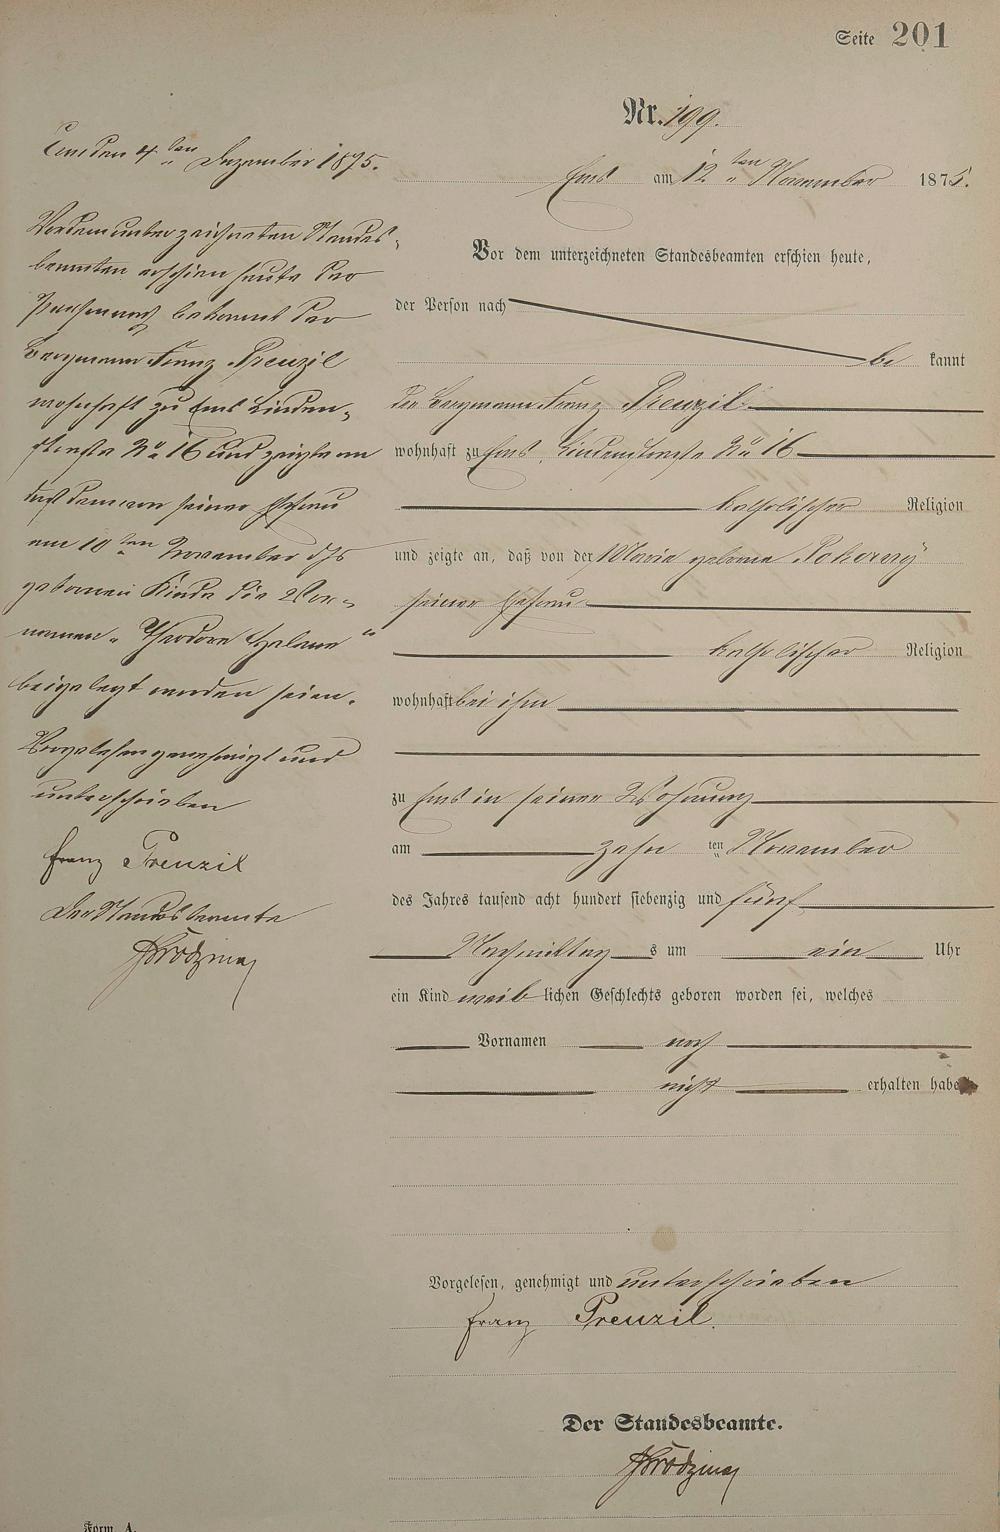 Seite 201
Nr. 199.
Ems am 12ten November 1875.
Vor dem unterzeichneten Standesbeamten erschien heute,
der Person nach
be kannt
der Bergmann Franz Preuzil
wohnhaft zu Ems, Lindenstraße No 16
katholischer Religion
und zeigte an, daß von der Marie geborne Pokorny
seiner Ehefrau
katholischer Religion
wohnhaft bei ihm
zu Ems in seiner Wohnung
am zehn ten November
des Jahres tausend acht hundert siebenzig und fünf
Nachmittag s um ein Uhr
ein Kind weib lichen Geschlechts geboren worden sei, welches
Vornamen noch
nicht erhalten habe
Vorgelesen, genehmigt und unterschrieben
Franz Preuzil.
Der Standesbeamte.
Ems den 4ten Dezember 1875.
Vor dem unterzeichneten Standes-
beamten erschien heute der
Person nach bekannt der
Bergmann Franz Preuzil
wohnhaft zu Ems Linden-
straße No 16 und zeigte an
daß dem von seiner Ehefrau
am 10ten November d. Js
gebornen Kinde die Vor-
namen "Theodore Helene"
beigelegt worden seien.
Vorgelesen genehmigt und
unterschrieben
Franz Preuzil
Der Standesbeamte
Form. A.